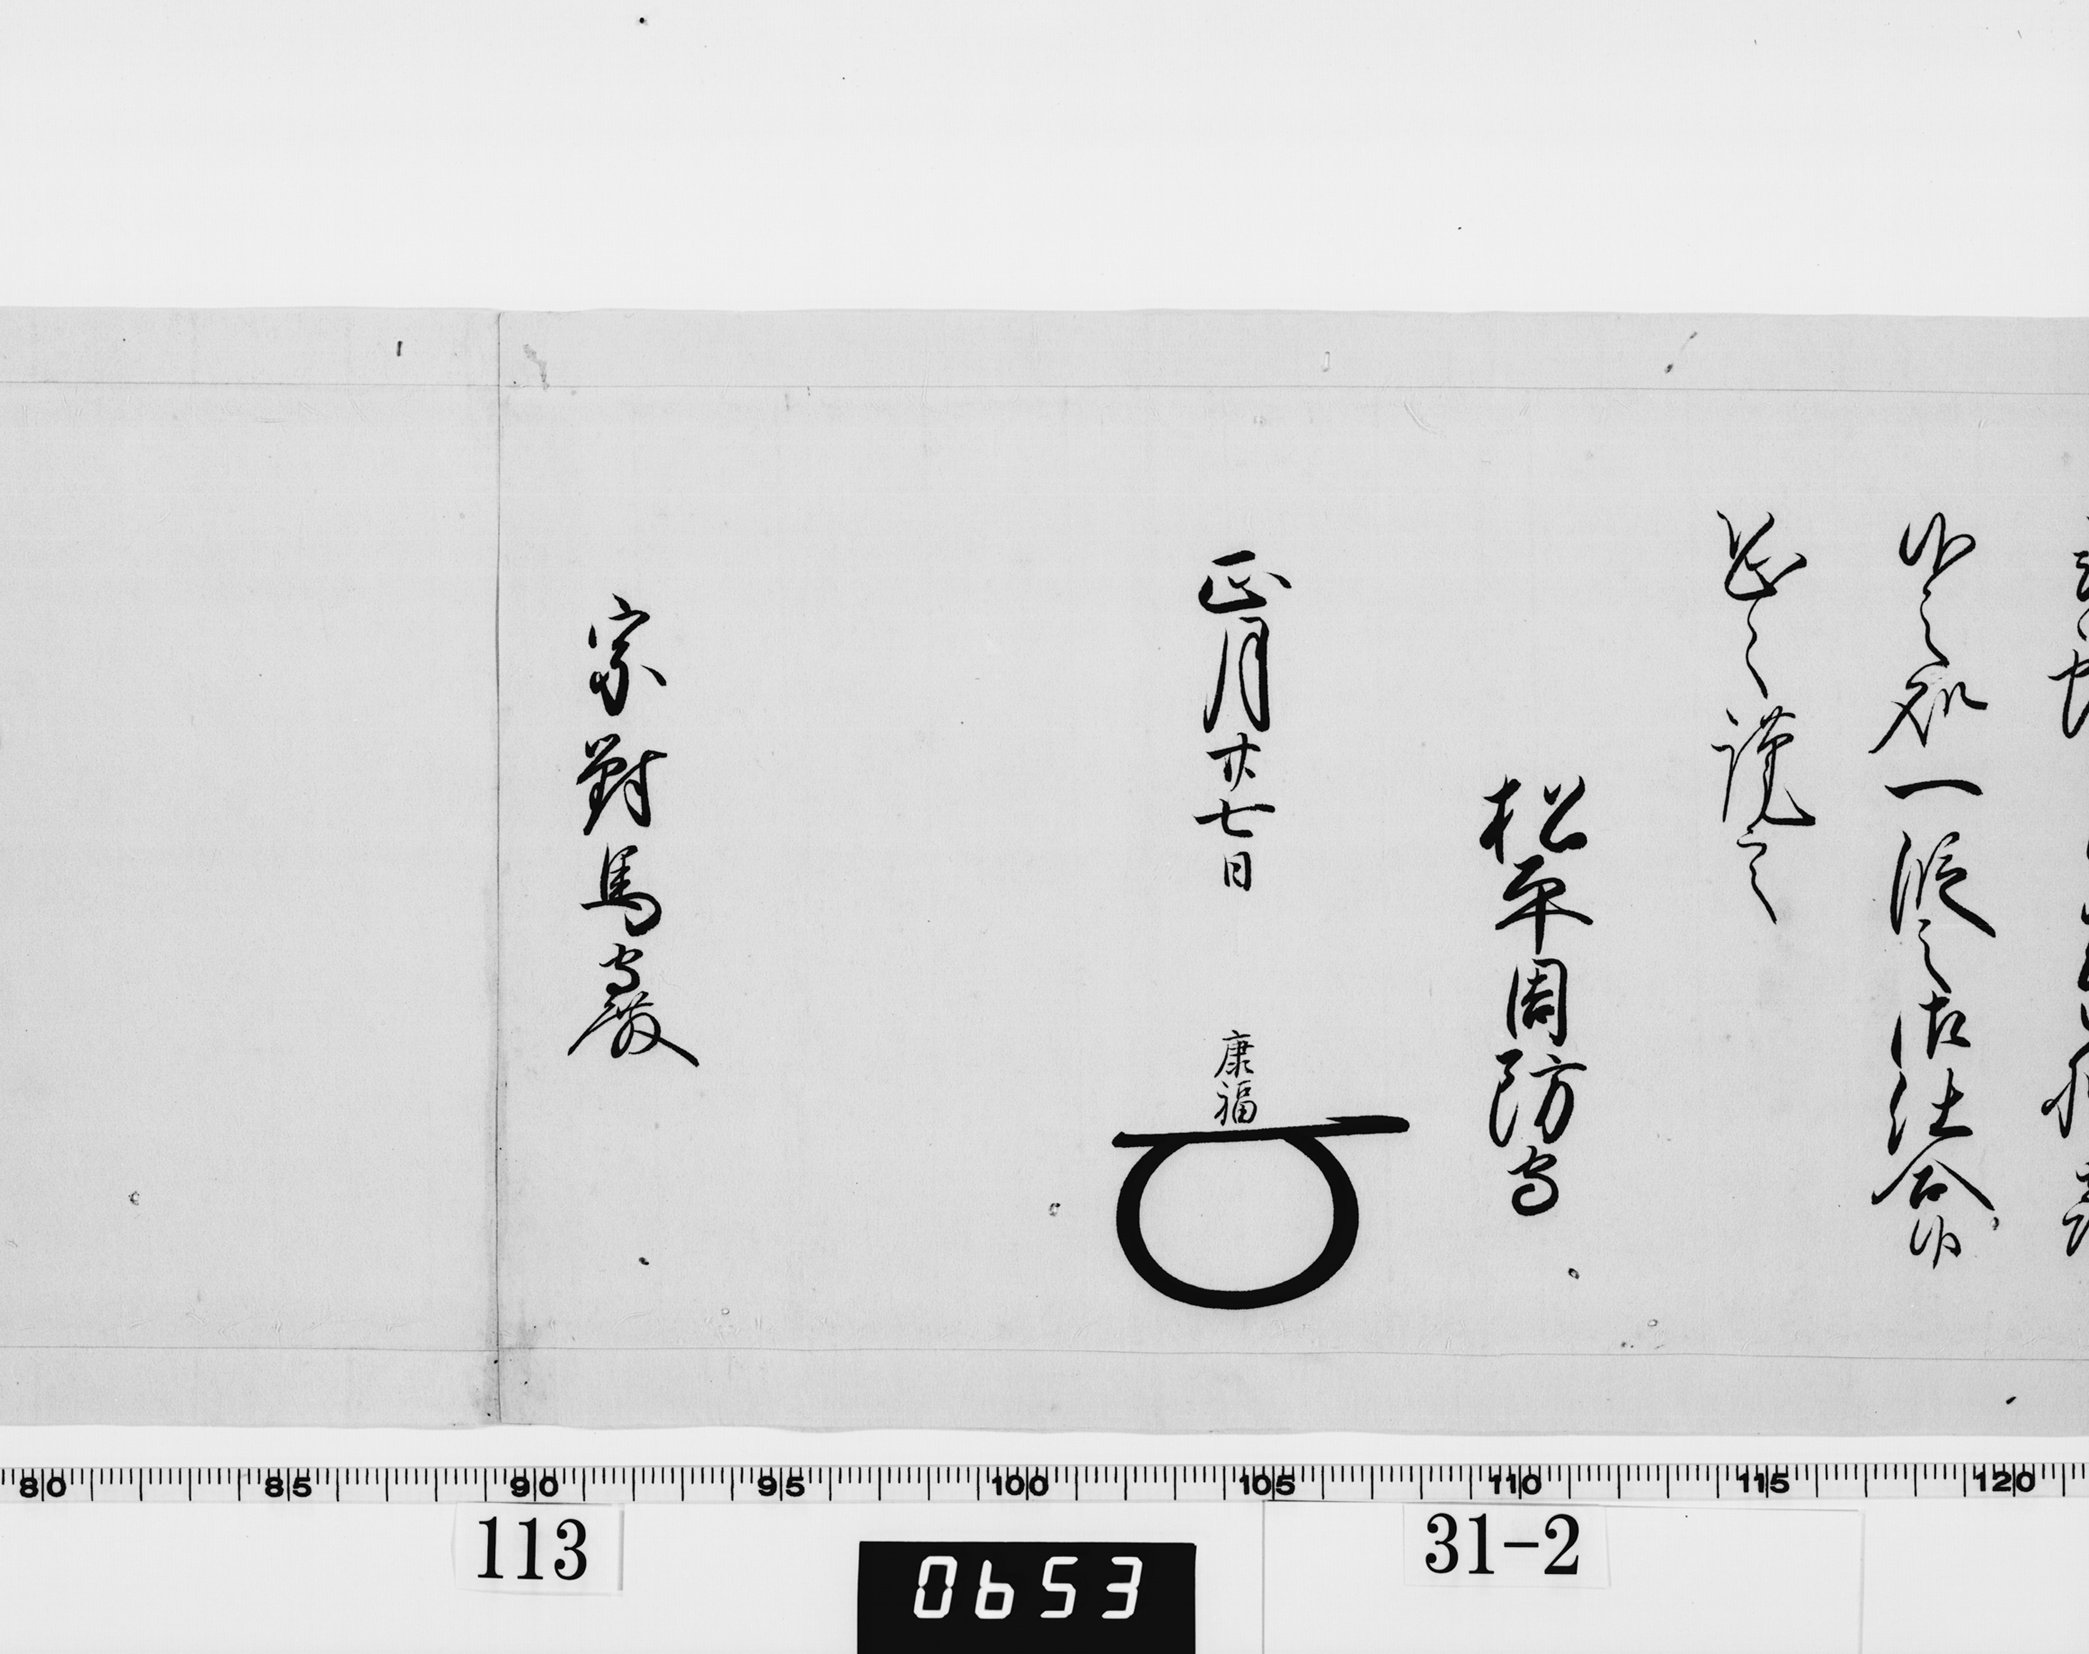 候之処一段之御仕合候
恐々謹言
松平周防守
正月廿七日 康福
宗對馬守殿
80 85 90 95 100 105 110 115 120
113
31-2
0653